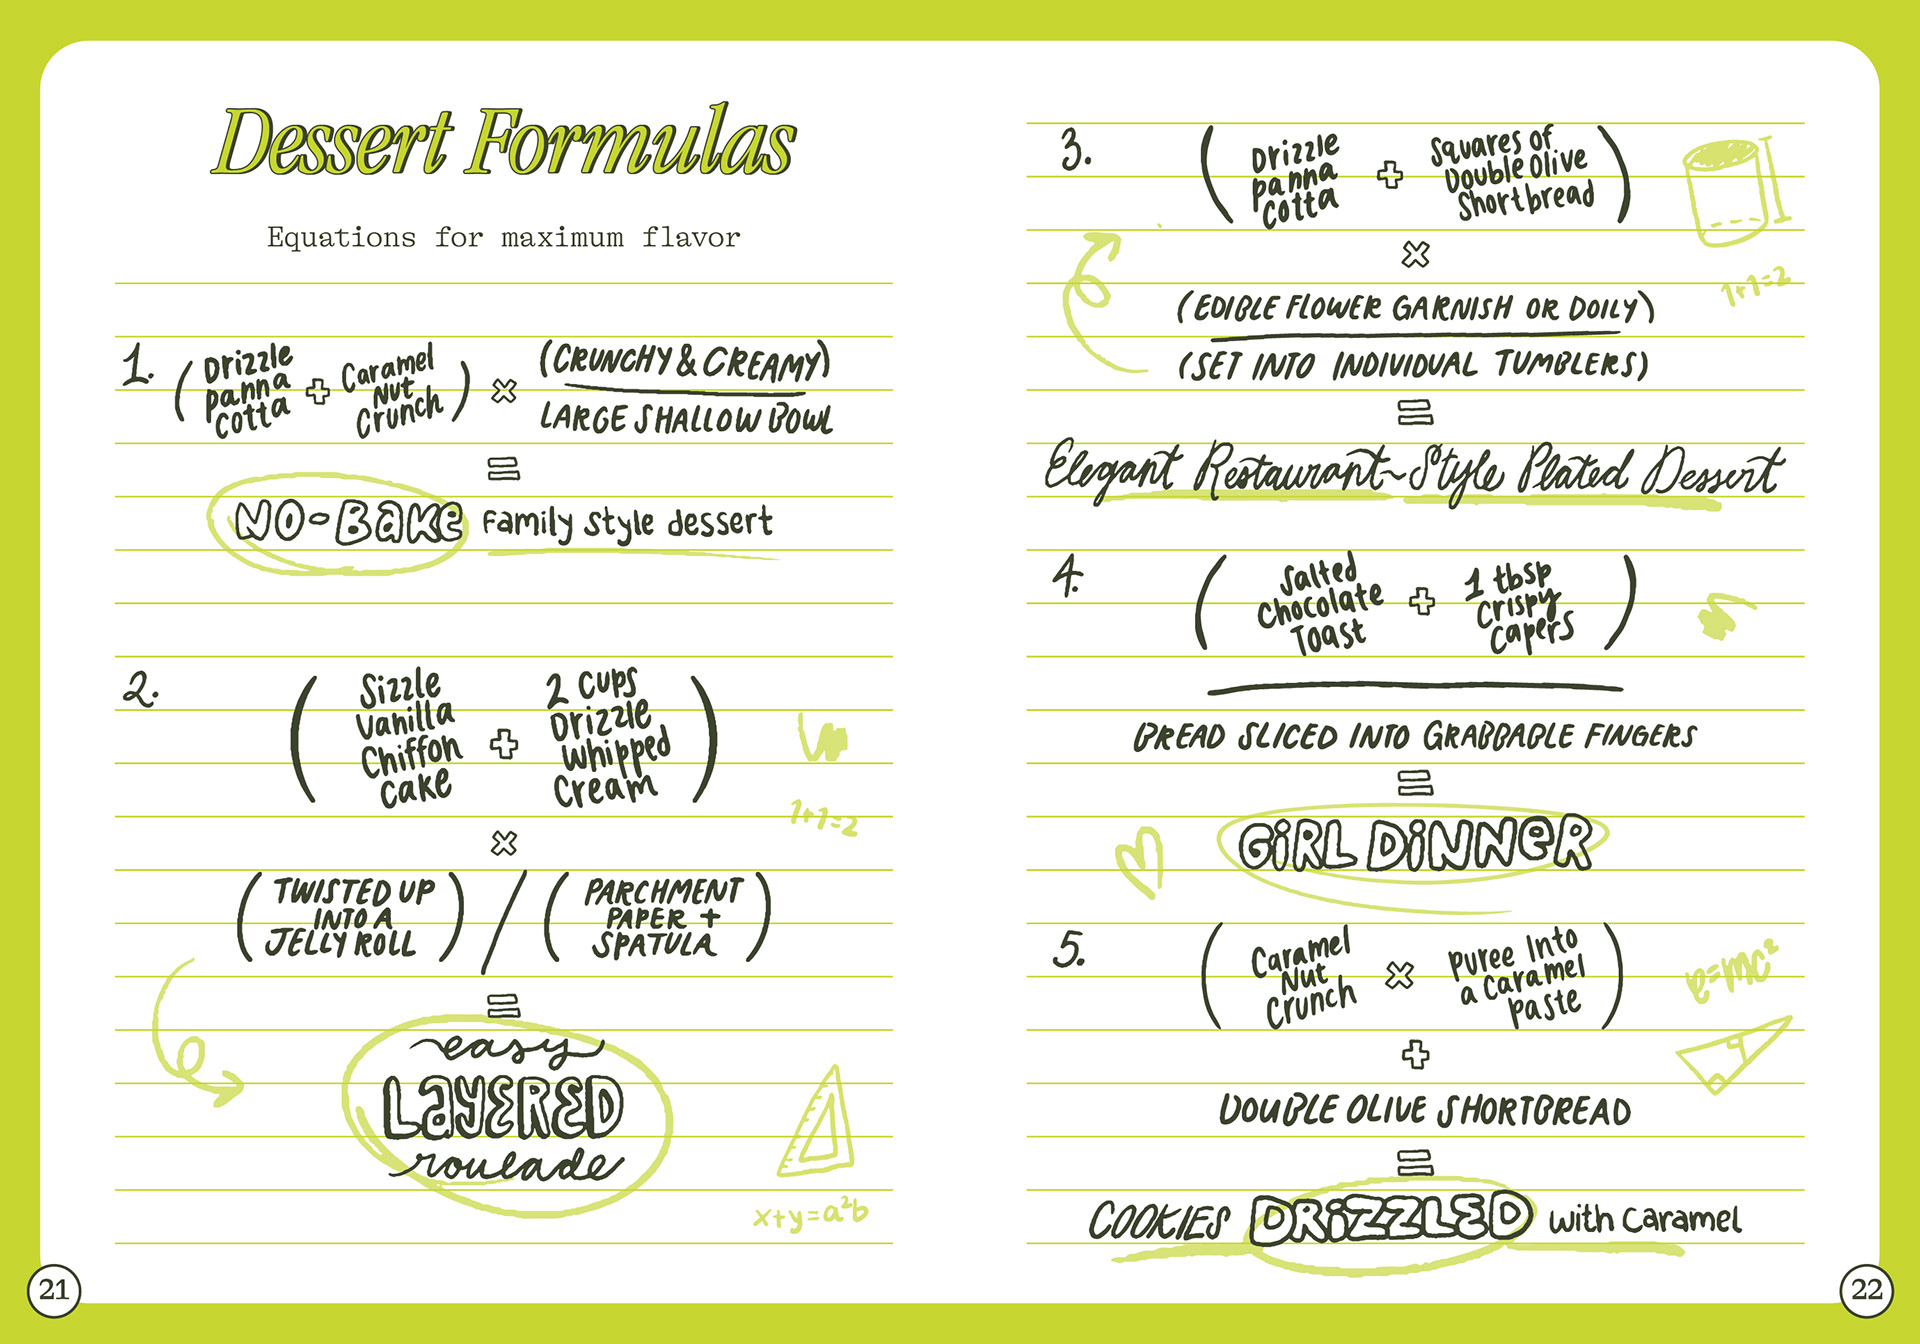 Dessert Formulas
Equations for maximum flavor
1.
(Drizzle
panna
cotta
+
Caramel
Nut
Crunch)
×
(CRUNCHY & CREAMY)
LARGE SHALLOW BOWL
=
NO-BAKE family style dessert
2.
(Sizzle
Vanilla
Chiffon
Cake
+
2 cups
Drizzle
Whipped
Cream)
×
(TWISTED UP
INTO A
JELLY ROLL)
/
(PARCHMENT
PAPER +
SPATULA)
=
easy
LAYERED
roulade
1+1=2
x+y=a²b
21
3.
(Drizzle
panna
cotta
+
Squares of
Double Olive
Shortbread)
×
(EDIBLE FLOWER GARNISH OR DOILY)
(SET INTO INDIVIDUAL TUMBLERS)
=
Elegant Restaurant-Style Plated Dessert
1+1=2
4.
(Salted
Chocolate
Toast
+
1 tbsp
Crispy
Capers)
BREAD SLICED INTO GRABBABLE FINGERS
=
GIRL DINNER
5.
(Caramel
Nut
Crunch
×
Puree into
a caramel
paste)
+
DOUBLE OLIVE SHORTBREAD
=
COOKIES DRIZZLED with caramel
e=mc²
22